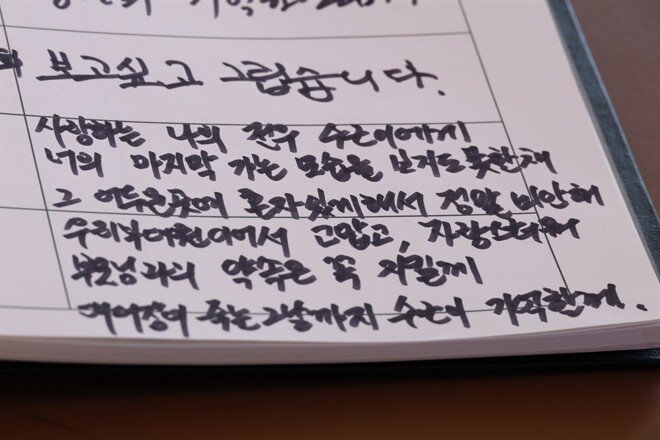 보고싶고 그립습니다.
사랑하는 나의 전우 수근이에게
너의 마지막 가는 모습을 보지도 못한채
그 어두운곳에 혼자있게해서 정말 미안해
우리 부대원이어서 고맙고, 자랑스러워
부모님과의 약속은 꼭 지킬께
죽는 그날까지 수근이 기억할께.